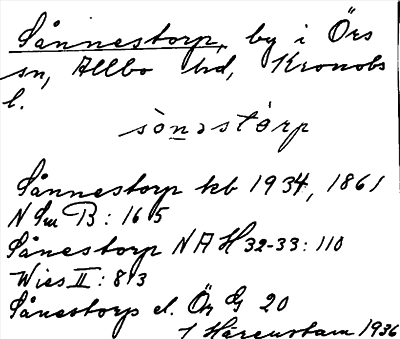 Sånnestorp, by i Örs
sn, Allbo hd, Kronobs
l.
sònəstòrp
Sånnestorp kb 1934, 1861
N Sm B: 165
Sånestorp NAH 32-33: 110
Wies II: 813
Sånestorp el. Ör G 20
1 Härenstam 1936